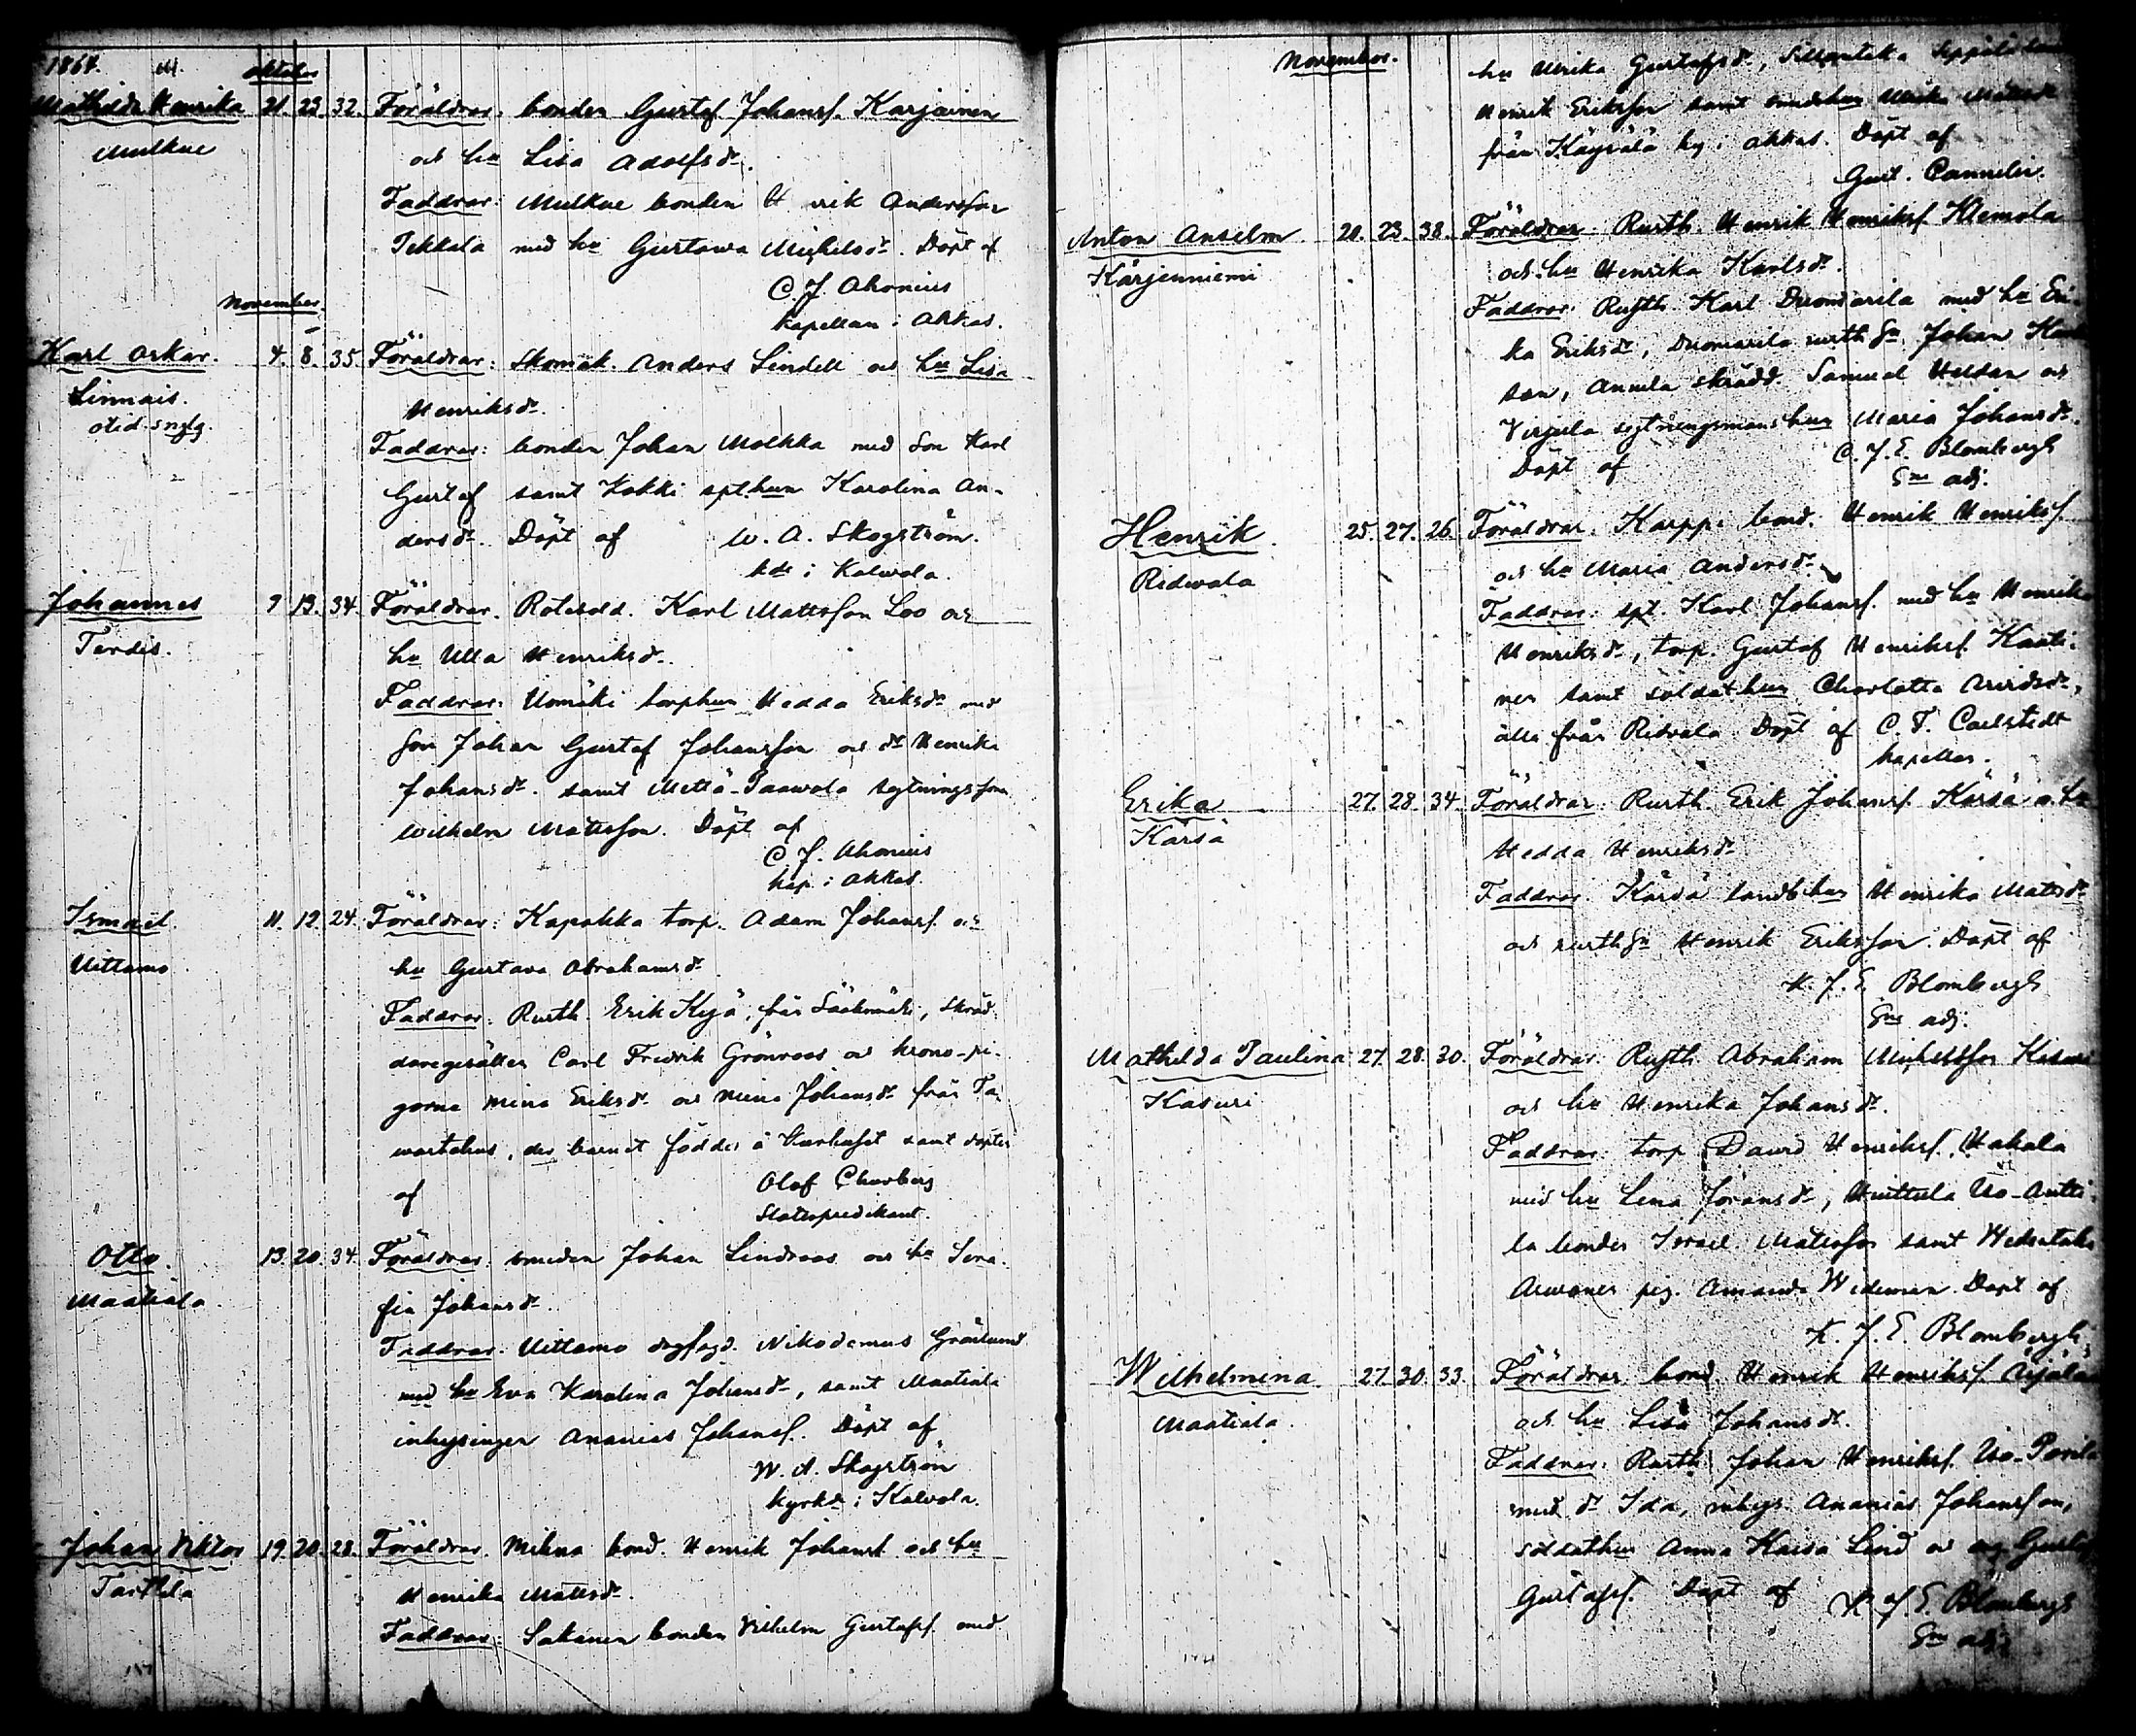 1864.
Oktober
Mathilda Henrika 21. 23. 32. Föräldrar: bonden Gustaf Johansf. Karjainen
Mulkue
och hu Lisa Adolfsdr.
Faddrar: Mulkue bonden Anderssson
Tekkala med hu Gustawa Michelsdr. Döpt af
C. J. Ahonius
kapellan i Akkas.
November
Karl Oskar. 4. 8. 35. Föräldrar: Skomak. Anders Lindell och hu Lisa
Linnais.
Henriksdr.
Faddrar: bonden Johan Molkka med Son Karl
Gustaf samt Kokki spt.hun Karolina An-
dersdr. Döpt af W. A. Skogström.
kdr i Kalvola.
Johannes 9 13. 34. Föräldrar. Rotesold. Karl Mattsson Loo och
Terdis.
hu Ulla Henriksdr.
Faddrar: Uomäki torphun Hedda Eriksdr med
Son Johan Gustaf Johansson och dr Henrika
Johansdr. samt Mettä-Paawola sytningsson
Wilhelm Mattsson. Döpt af
C. J. Ahonius
kap. i Akkas.
Ismael. 11. 12. 24. Föräldrar: Kapakka torp. Adam Johansf. och
Uittamo
hu Gustava Abrahamsdr
Faddrar: Rusth. Erik Kyä, från Sääksmäki, skräd-
daregesällen Carl Fredrik Grönroos och krono-pi-
gorna Mina Eriksdr och Mina Johansdr från Ta-
wastehus, der barnet föddes å Kurhuset samt döptes
af Olof Chorberg
Slottspredikant.
Otto. 13. 20. 34. Föräldrar. smeden Johan Lindroos och hu Sera-
Maatiala
fia Johansdr
Faddrar. Uittamo Nikodemus Grönlund
med hu Eva Karolina Johansdr, samt Maatiala
inhysingen Ananias Johansf. Döpt af
W. A. Skogström
kyrkdr i Kalvola.
Johan Viktor 19. 20. 28. Föräldrar. Mikua bond. Henrik Johansf. och hu
Tarttila
Henrika Mattsdr.
Faddrar: Sakanen bonden Vilhelm Gustafsf. med
November.
hu Ulrika Gustafsdr, Sillantaka Seppälä
Henrik Eriksson samt Ulrika
från Käyrälä by i Akkas. Döpt af
Gust. Cannelin.
Anton Anselm 20. 23. 38. Föräldrar: Rusth. Henrik Henriksf. Klemola
Kärjenniemi
och hu Henrika Karlsdr.
Faddrar: Rusth. Karl Duomarila med hu Eri-
ka Eriksdr, Duomarila rusth.Sn Johan
son, Annila skrädd. Samuel och
sytningsmans hun Maria Johansdr.
Döpt af C. J. E. Blombergh
Sns adj.
Henrik. 25. 27. 26. Föräldrar. Karppi bond. Henrik Henriksf.
Ridvala
och hu Maria Andersdr.
Faddrar: spt. Karl Johansf. med hu Henrika
Henriksdr, torp. Gustaf Henriksf. Kaati-
nen samt soldathun Charlotta Arvidsdr,
alla från Ridvala. Döpt af C. F. Carlstedt
kapellan.
Erika 27. 28. 34. Föräldrar: Rusth. Erik Johansf. Kärsä o. hu
Kärsä
Hedda Henriksdr
Faddrar. Kärsä landb.hun Henrika Mattsdr
och rusth.Sn Henrik Eriksson. Döpt af
K. J. E. Blombergh
Sns adj.
Mathilda Paulina 27. 28. 30. Föräldrar. Rusth. Abraham Michelsson Kasuri
Kasuri
och hu Henrika Johansdr.
Faddrar: torp David Henriksf. Hakala
med hu Lena Göransdr, Huittula Uo-Antti-
la bonden Israel Mattsson samt
pig. Amanda Wideman. Döpt af
K. J. E. Blombergh
Wilhelmina. 27. 30. 33. Föräldrar bond Henrik Henriksf.
Maatiala.
och hu Lisa Johansdr.
Faddrar: Rusth Johan Henriksf.
med dr Ida, inhys. Ananias Johansson,
soldathun Anna Kaisa Lind och
Gustafsf. Döpt af K. J. E. Blombergh
Sns adj.